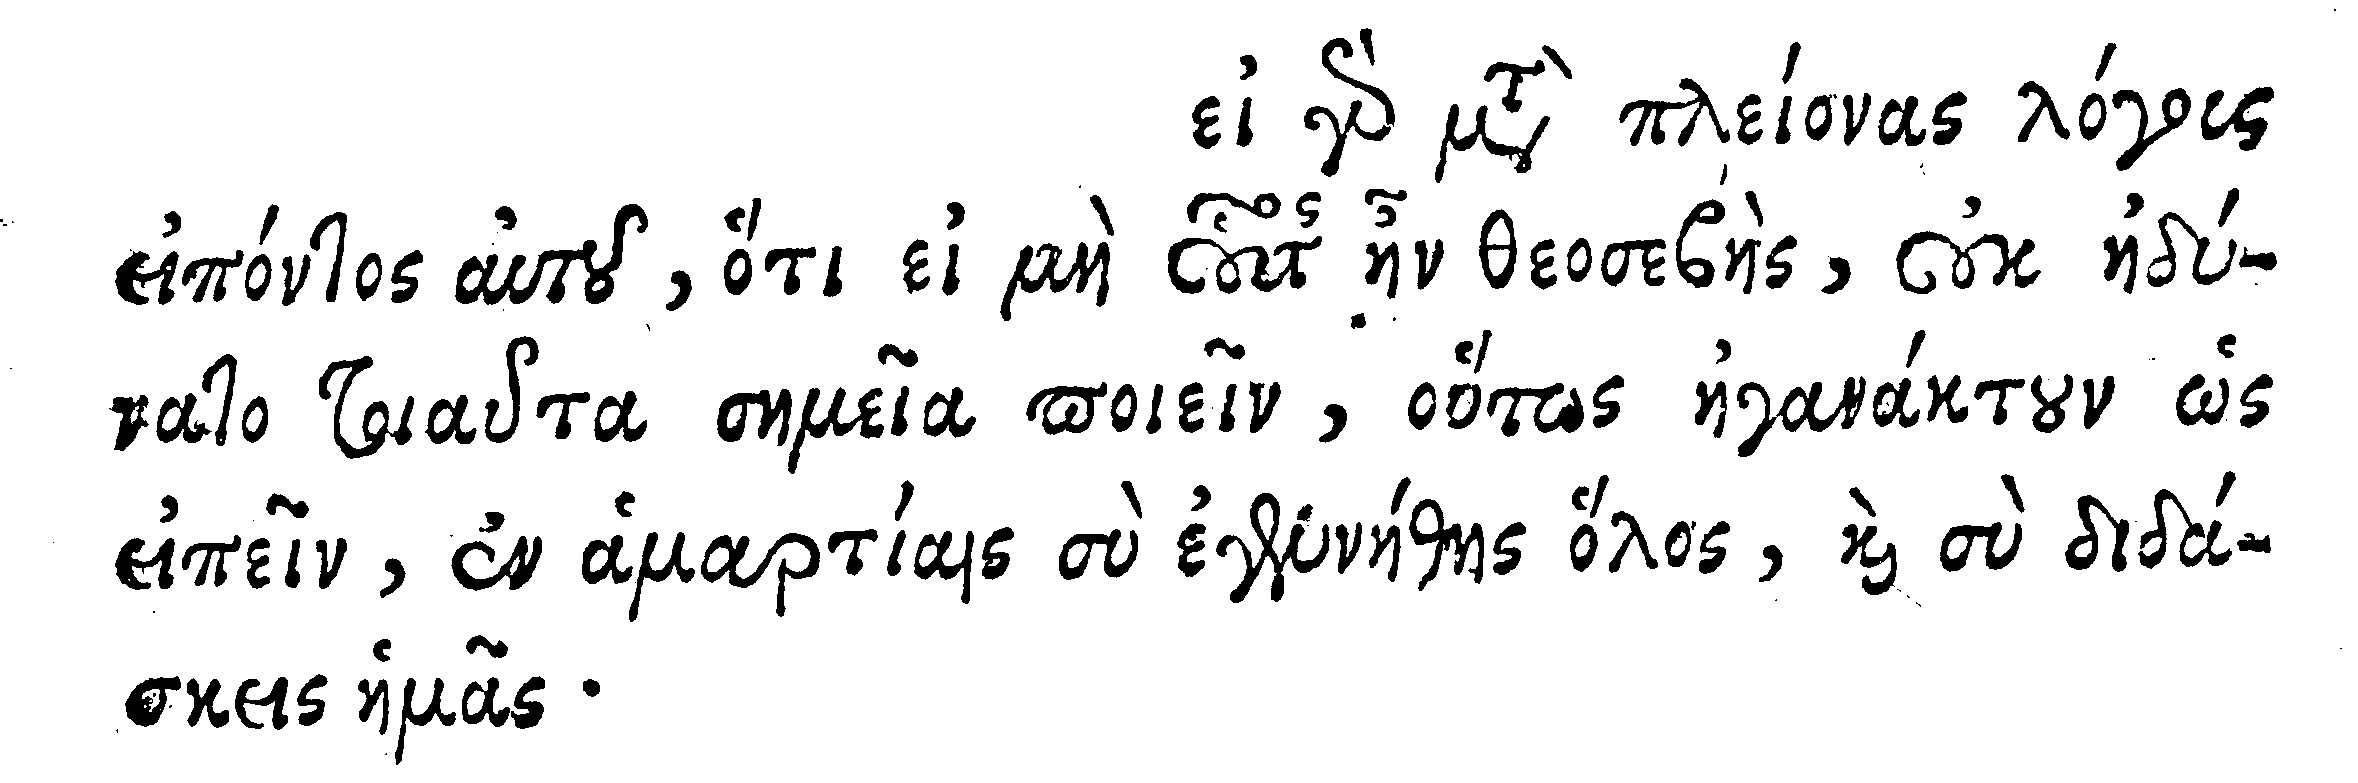 εἰ γὰρ μετὰ πλείονας λόγους
εἰπόντος αὐτοῦ, ὅτι εἰ μὴ οὗτος ἦν θεοσεβὴς, οὐκ ἠδύ-
νατο τοιαῦτα σημεῖα ποιεῖν, οὕτως ἠγανάκτουν ὡς
εἰπεῖν, ἐν ἁμαρτίαις σὺ ἐγεννήθης ὅλος, καὶ σὺ διδά-
σκεις ἡμᾶς.